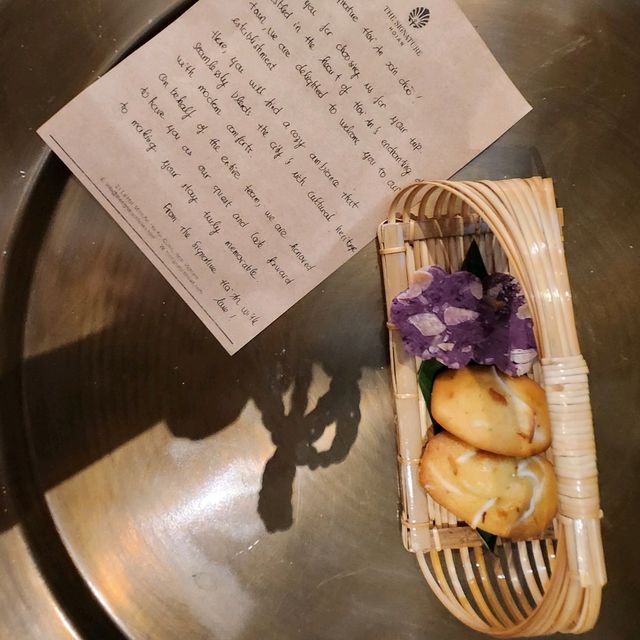 THE SIGNATURE
HOIAN
you for choosing us for your trip.
in the heart of Hoi An's enchanting
we are delighted to welcome you to our
establishment
Here, you will find a cozy ambiance that
seamlessly blends the city's rich cultural heritage
with modern comforts
On behalf of the entire team, we are honored
to have you as our guest and look forward
to making your stay truly memorable.
From the Signature Hoi An with
love!